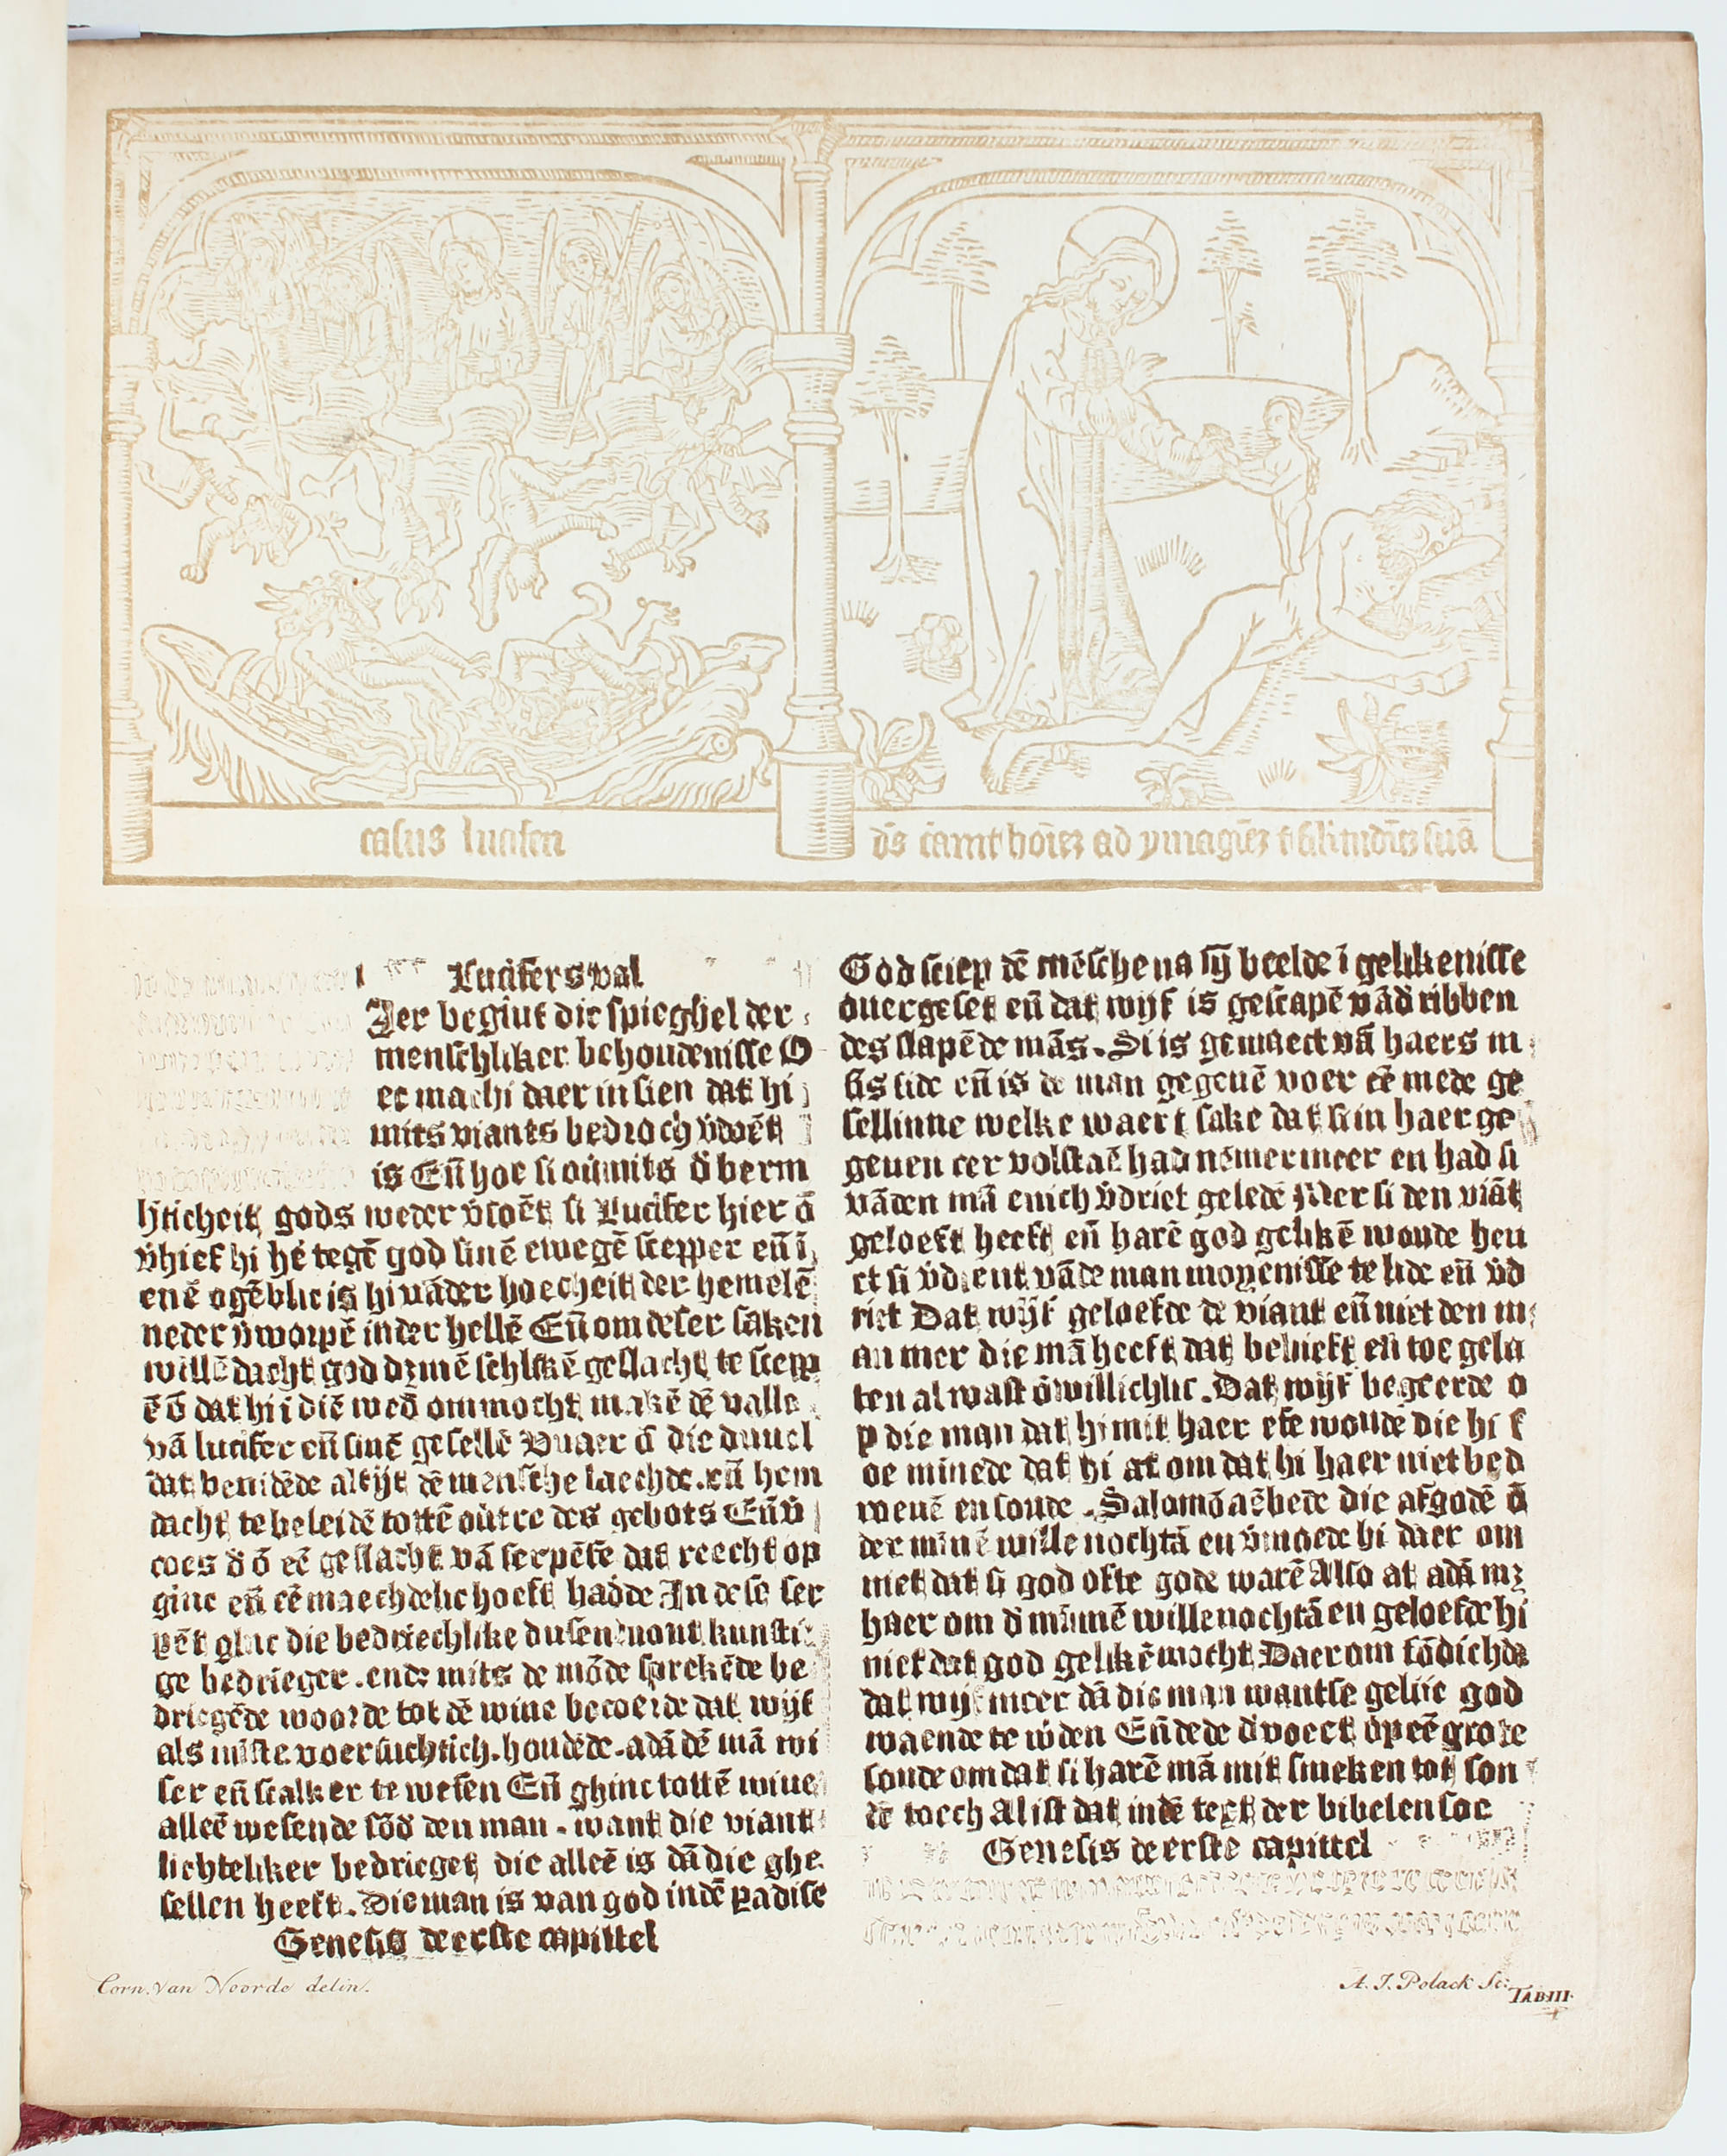 casus luciferi
dn̄s creavit hoīez ad ymaginē̄ ⁊ siĺitudinē suā
Lucifers val
Hier begint die spieghel der
menschliker behoudenisse O
ec machi daer in sien dat hi
mits viants bedroch v̄doēt
is En̄ hoe si ouimits d̄ berm
hʼticheit gods weder v̄soēt si Lucifer hier ō
v̄hief hi hē tegē god sinē ewegē scepper en̄ ī
enē ogēblic is hi vāder hoecheit der hemelē
neder v̄worpē inder hellē En̄ om deser saken
willē dacht god dʒ mē schlikē geslacht te scepp
ē ō dat hi ī diē wed̄ om mocht makē dē valle
vā lucifer en̄ sinē gesellē Waer ō die duuel
dat benidēde altijt dē mensche laechde . en̄ hem
dacht te beleidē tottē ou̇tre des gebots En̄ v̄
coes d̄ ō eē geslacht vā serpēte dat reecht op
ginc en̄ eē maechdelic hoeft hadde In dese ser
pēt glac die bedriechlike dusent uout kunsti
ge bedrieger . ende mits de mōde sprekēde be
driegēde woorde tot dē wiue becoerde dat wijf
als mīste voersuchtich . houdēde . adā dē mā wi
ser en̄ scalker te wesen En̄ ghinc tottē wiue
alleē wesende sōd̄ den man . want die viant
lichteliker bedrieget die alleē is dā die ghe
sellen heeft . Die man is van god indē padise
Genesis deerste capittel
God sciep dē mēsche na sij beelde ī gelikenisse
ouergeset en̄ dat wijf is gescapē vā d̄ ribben
des slapēde mās . Si is gemaect vā haers m
ās side en̄ is de man gegeuē voer eē mede ge
sellinne welke waert sake dat si in haer ge
geuen eer volstaē had nēmermeer en had si
vāden mā enich v̄driet geledē Mer si den viāt
geloeft heeft en̄ harē god gelikē woude heu
et si v̄dient vā de man moyenisse te lide en̄ v̄d
riet Dat wijf geloefde de viant en̄ niet den m
an mer die mā heeft dat belieft en̄ toe gela
ten al wast ōwillichlic . Dat wijf begeerde o
p die man dat hi mit haer ete woude die hi s
oe minede dat hi at om dat hi haer niet bed
roeuē en soude . Salomō aēbede die afgodē ō
der minē wille nochtā en v̄moede hi daer om
niet dat si god ofte gode warē Also at adā mʒ
haer om d̄ minnē wille nochtā en geloefde hi
niet dat god gelikē mocht Daer om sōdichde
dat wijf meer dā die man want se gelijc god
waende te w̄den En̄ dede d̄ voert op eē grote
sonde om dat si harē mā mit smeken tot son
dē toech Al ist dat indē text der bibelen soe
Genesis deerste capittel
Corn. van Noorde delin.
A. J. Polack Sc:
TAB. III.